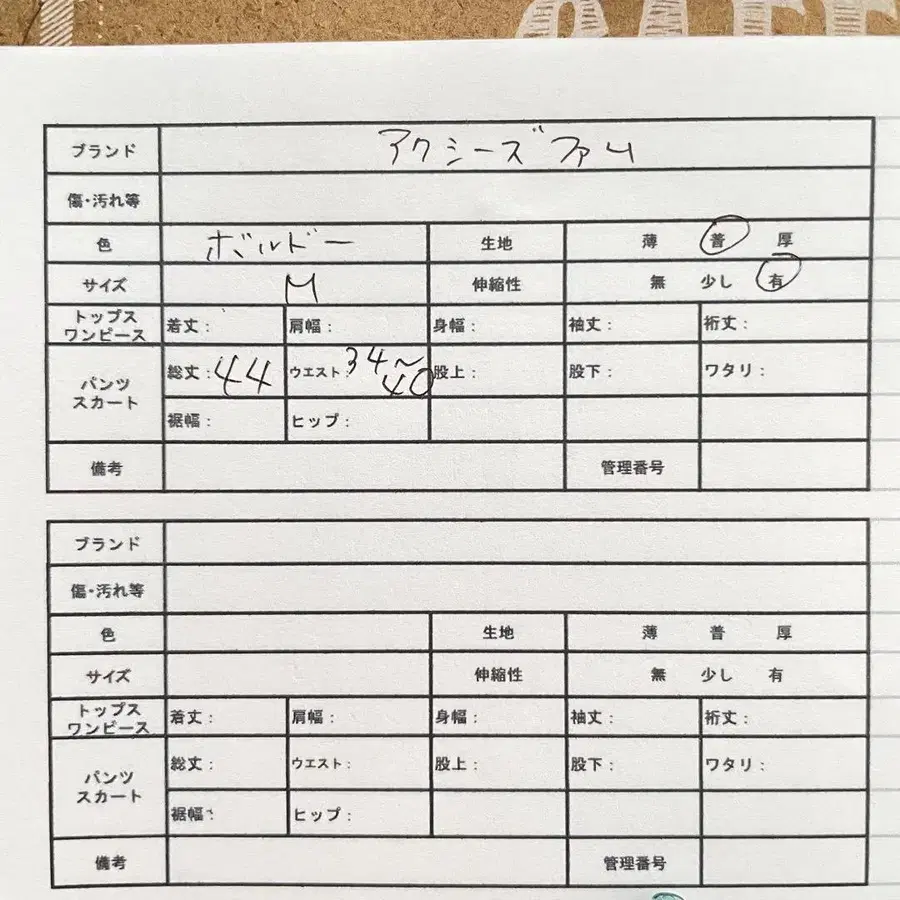 ブランド アクシーズファム
傷・汚れ等
色 ボルドー 生地 薄 普 厚
サイズ M 伸縮性 無 少し 有
トップス
ワンピース 着丈： 肩幅： 身幅： 袖丈： 裄丈：
パンツ
スカート 総丈：44 ウエスト：34〜40 股上： 股下： ワタリ：
裾幅： ヒップ：
備考 管理番号
ブランド
傷・汚れ等
色 生地 薄 普 厚
サイズ 伸縮性 無 少し 有
トップス
ワンピース 着丈： 肩幅： 身幅： 袖丈： 裄丈：
パンツ
スカート 総丈： ウエスト： 股上： 股下： ワタリ：
裾幅： ヒップ：
備考 管理番号